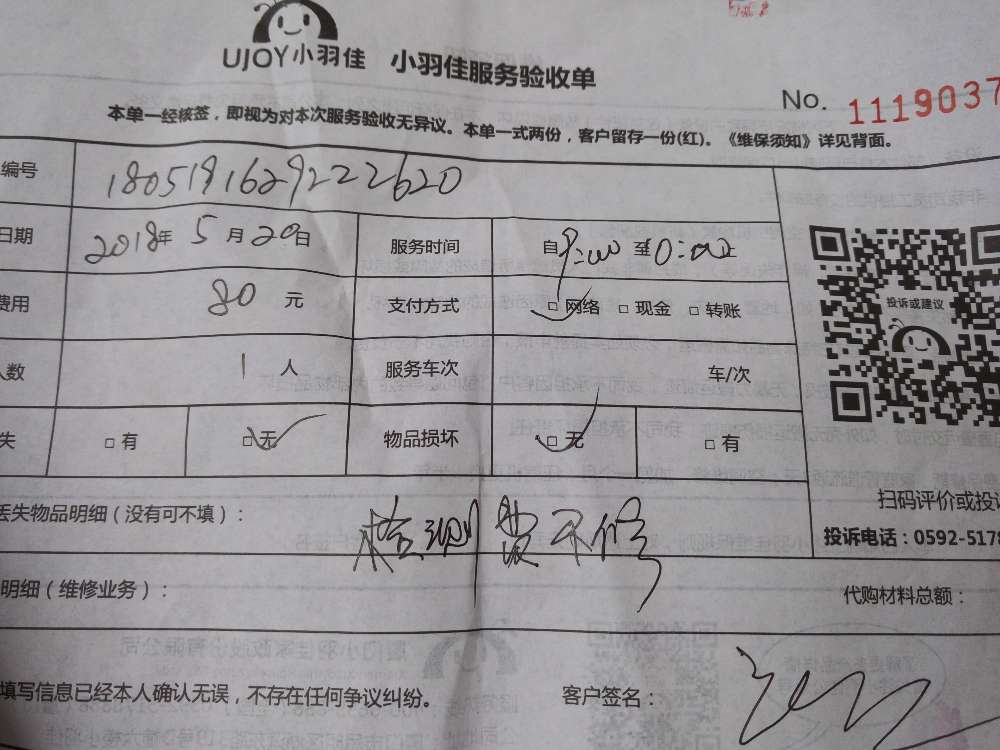 UJOY小羽佳 小羽佳服务验收单
No. 1119037
本单一经核签，即视为对本次服务验收无异议。本单一式两份，客户留存一份(红)。《维保须知》详见背面。
编号 1805191629222620
日期 2018年 5 月 20日 服务时间 自9:00 至10:00止
费用 80 元 支付方式 □网络 □现金 □转账
人数 1 人 服务车次 车/次
失 □有 □无 物品损坏 □无 □有
投诉或建议
扫码评价或投诉
投诉电话：0592-5178
丢失物品明细（没有可不填）： 检测费不修
明细（维修业务）： 代购材料总额：
填写信息已经本人确认无误，不存在任何争议纠纷。 客户签名：